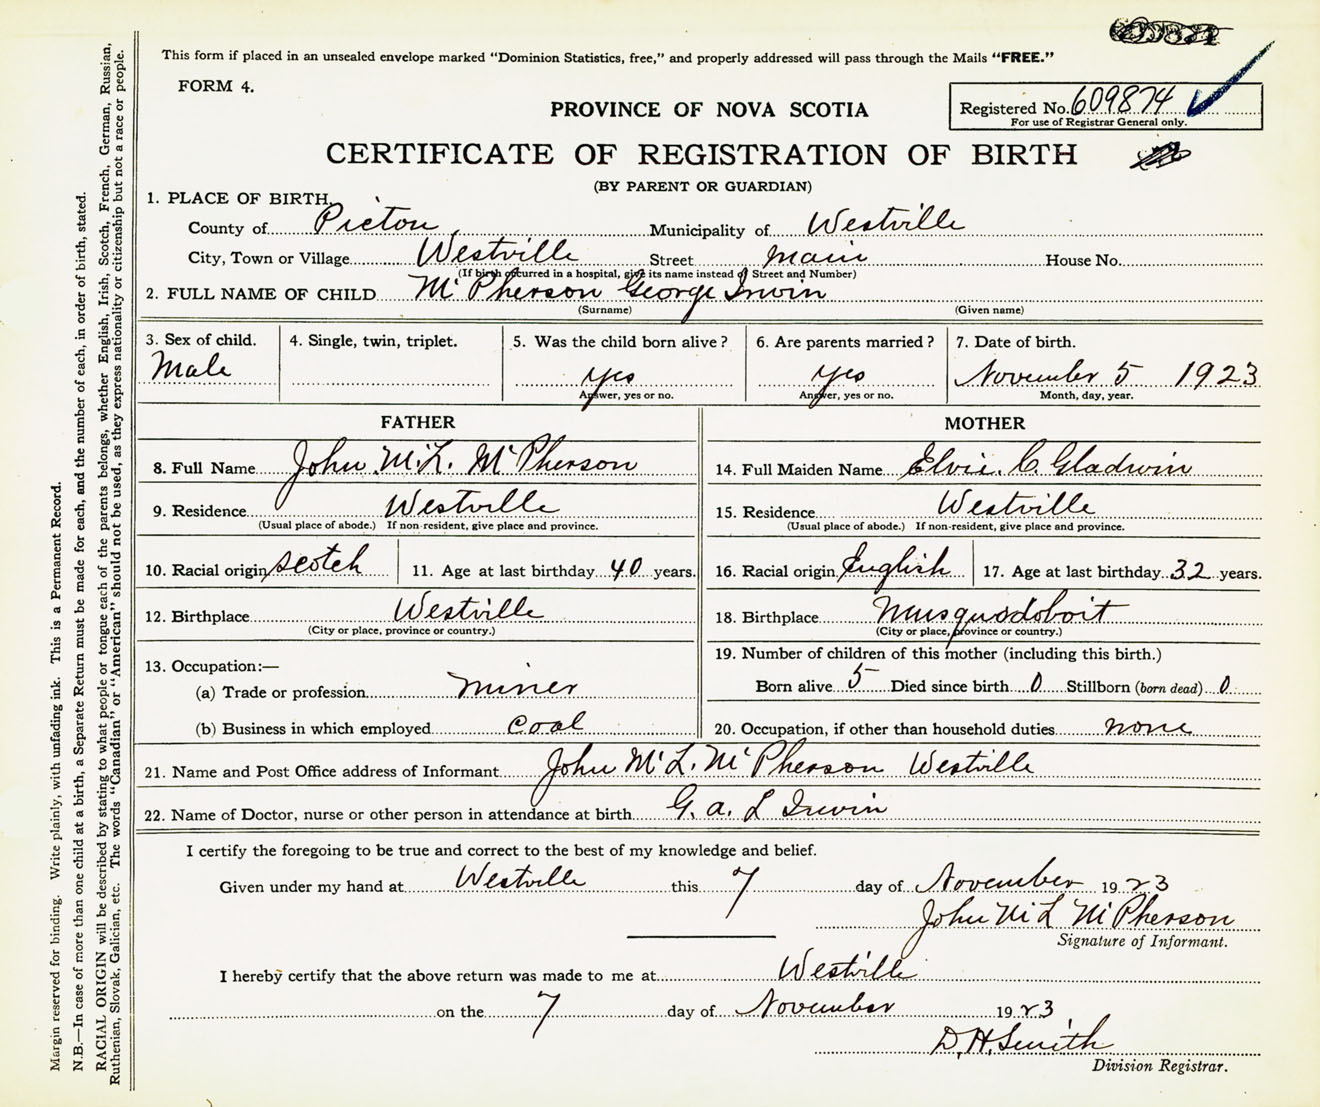 This form if placed in an unsealed envelope marked "Dominion Statistics, free," and properly addressed will pass through the Mails "FREE."
FORM 4.
PROVINCE OF NOVA SCOTIA
Registered No. 609874
For use of Registrar General only.
CERTIFICATE OF REGISTRATION OF BIRTH
(BY PARENT OR GUARDIAN)
1. PLACE OF BIRTH,
County of Pictou, Municipality of Westville
City, Town or Village Westville Street Main House No.
(If birth occurred in a hospital, give its name instead of Street and Number)
2. FULL NAME OF CHILD McPherson George Irwin
(Surname) (Given name)
3. Sex of child. 4. Single, twin, triplet. 5. Was the child born alive? 6. Are parents married? 7. Date of birth.
Male yes yes November 5 1923
Answer, yes or no. Answer, yes or no. Month, day, year.
FATHER MOTHER
8. Full Name John McL. McPherson 14. Full Maiden Name Elvie. C. Gladwin
9. Residence Westville 15. Residence Westville
(Usual place of abode.) If non-resident, give place and province. (Usual place of abode.) If non-resident, give place and province.
10. Racial origin Scotch 11. Age at last birthday 40 years. 16. Racial origin English 17. Age at last birthday 32 years.
12. Birthplace Westville 18. Birthplace Musquodoboit
(City or place, province or country.) (City or place, province or country.)
13. Occupation:— 19. Number of children of this mother (including this birth.)
(a) Trade or profession miner Born alive 5 Died since birth 0 Stillborn (born dead) 0
(b) Business in which employed coal 20. Occupation, if other than household duties none
21. Name and Post Office address of Informant John McL. McPherson Westville
22. Name of Doctor, nurse or other person in attendance at birth G. A. L Irwin
I certify the foregoing to be true and correct to the best of my knowledge and belief.
Given under my hand at Westville this 7 day of November 1923
John McL McPherson
Signature of Informant.
I hereby certify that the above return was made to me at Westville
on the 7 day of November 1923
D. H. Smith
Division Registrar.
Margin reserved for binding. Write plainly, with unfading ink. This is a Permanent Record.
N.B.—In case of more than one child at a birth, a Separate Return must be made for each, and the number of each, in order of birth, stated.
RACIAL ORIGIN will be described by stating to what people or tongue each of the parents belongs, whether English, Irish, Scotch, French, German, Russian,
Ruthenian, Slovak, Galician, etc. The words "Canadian" or "American" should not be used, as they express nationality or citizenship but not a race or people.